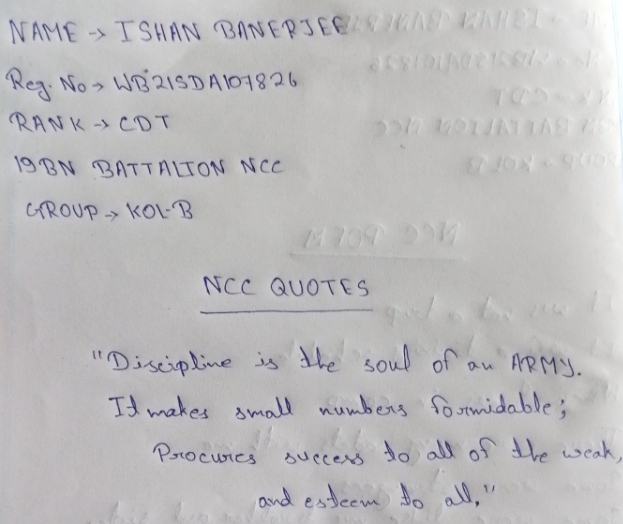 NAME → ISHAN BANERJEE
Reg. No → WB21SDA107826
RANK → CDT
19BN BATTALION NCC
GROUP → KOL-B
NCC QUOTES
"Discipline is the soul of an ARMY.
It makes small numbers formidable;
Procures success to all of the weak,
and esteem to all."